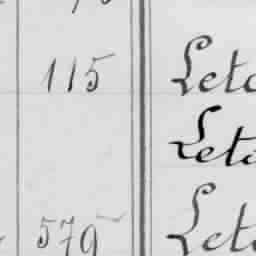 115 Leta
Leta
579 Leta